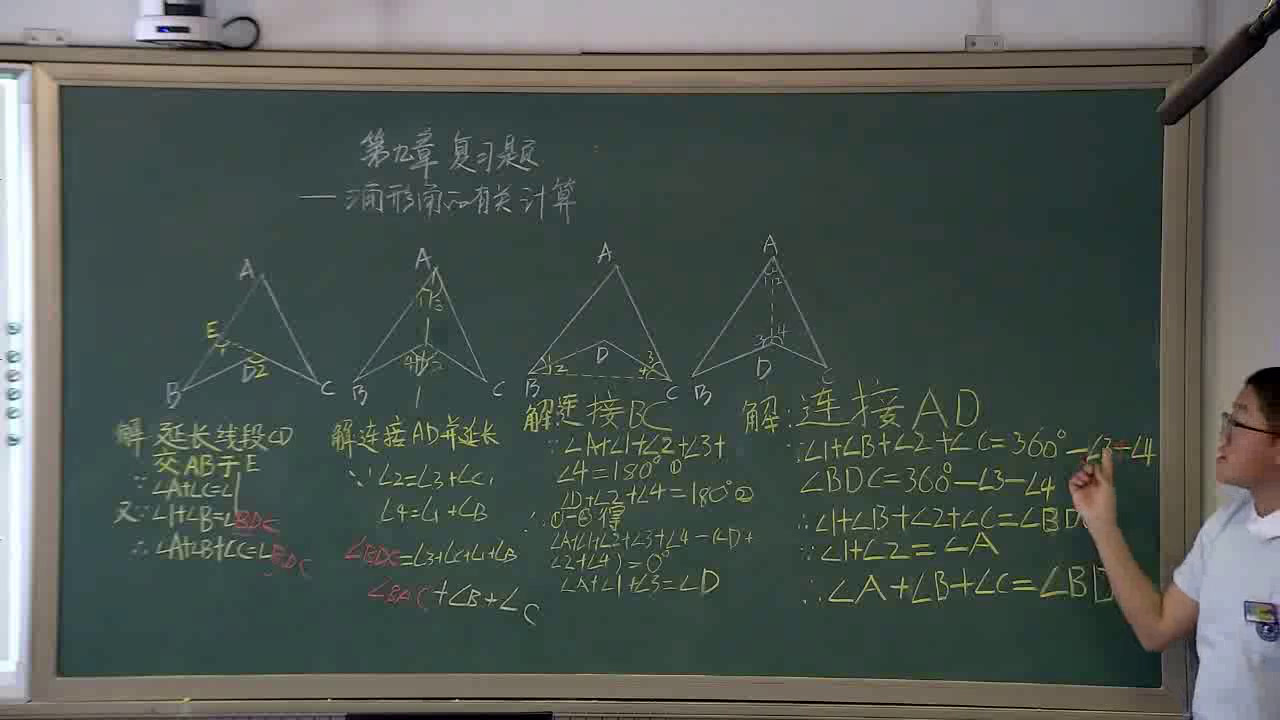 第九章 复习题
— 三角形角的有关计算
A
E
1
D
2
B
C
A
1
3
4
D
2
B
C
A
D
1
2
3
4
B
C
A
1
2
3
4
D
B
C
解 延长线段CD
交AB于E
∵∠A+∠C=∠1
又∵∠1+∠B=∠BDC
∴∠A+∠B+∠C=∠BDC
解 连接AD并延长
∵∠2=∠3+∠C,
∠4=∠1+∠B
∠BDC=∠3+∠C+∠1+∠B
∠BAC+∠B+∠C
解连接BC
∵∠A+∠1+∠2+∠3+
∠4=180°①
∠D+∠2+∠4=180°②
∴①-②得
∠A+∠1+∠2+∠3+∠4-(∠D+
∠2+∠4)=0°
∠A+∠1+∠3=∠D
解:连接AD
∵∠1+∠B+∠2+∠C=360°-∠3-∠4
∠BDC=360°-∠3-∠4
∴∠1+∠B+∠2+∠C=∠BD
∵∠1+∠2=∠A
∴∠A+∠B+∠C=∠BD